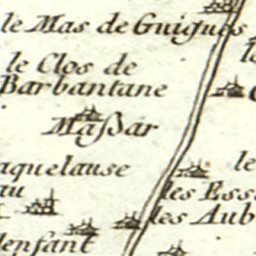 le Mas de Guigues
le Clos de
Barbantane
Maßar
aquelause
le
les Ess
au
les Aub
lenfant